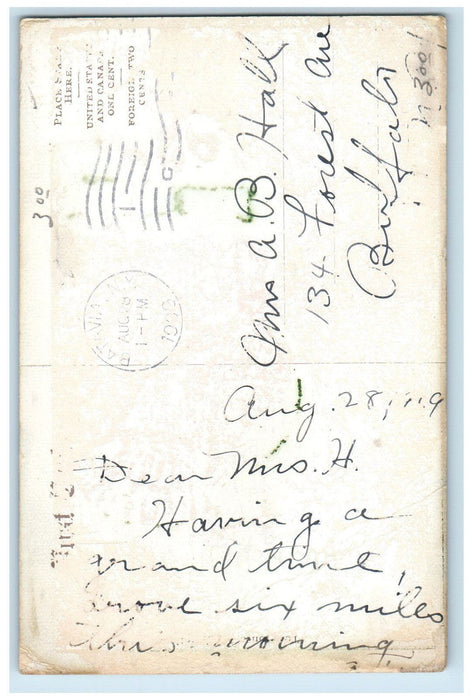 PLACE STAMP
HERE.
UNITED STATES
AND CANADA
ONE CENT.
FOREIGN, TWO
CENTS
3 00
AUG 28
1-PM
Mrs A. B. Hall
134 Forest Ave
Buffalo
Aug. 28, '09
Dear Mrs. H.
Having a
grand time,
Drove six miles
this morning